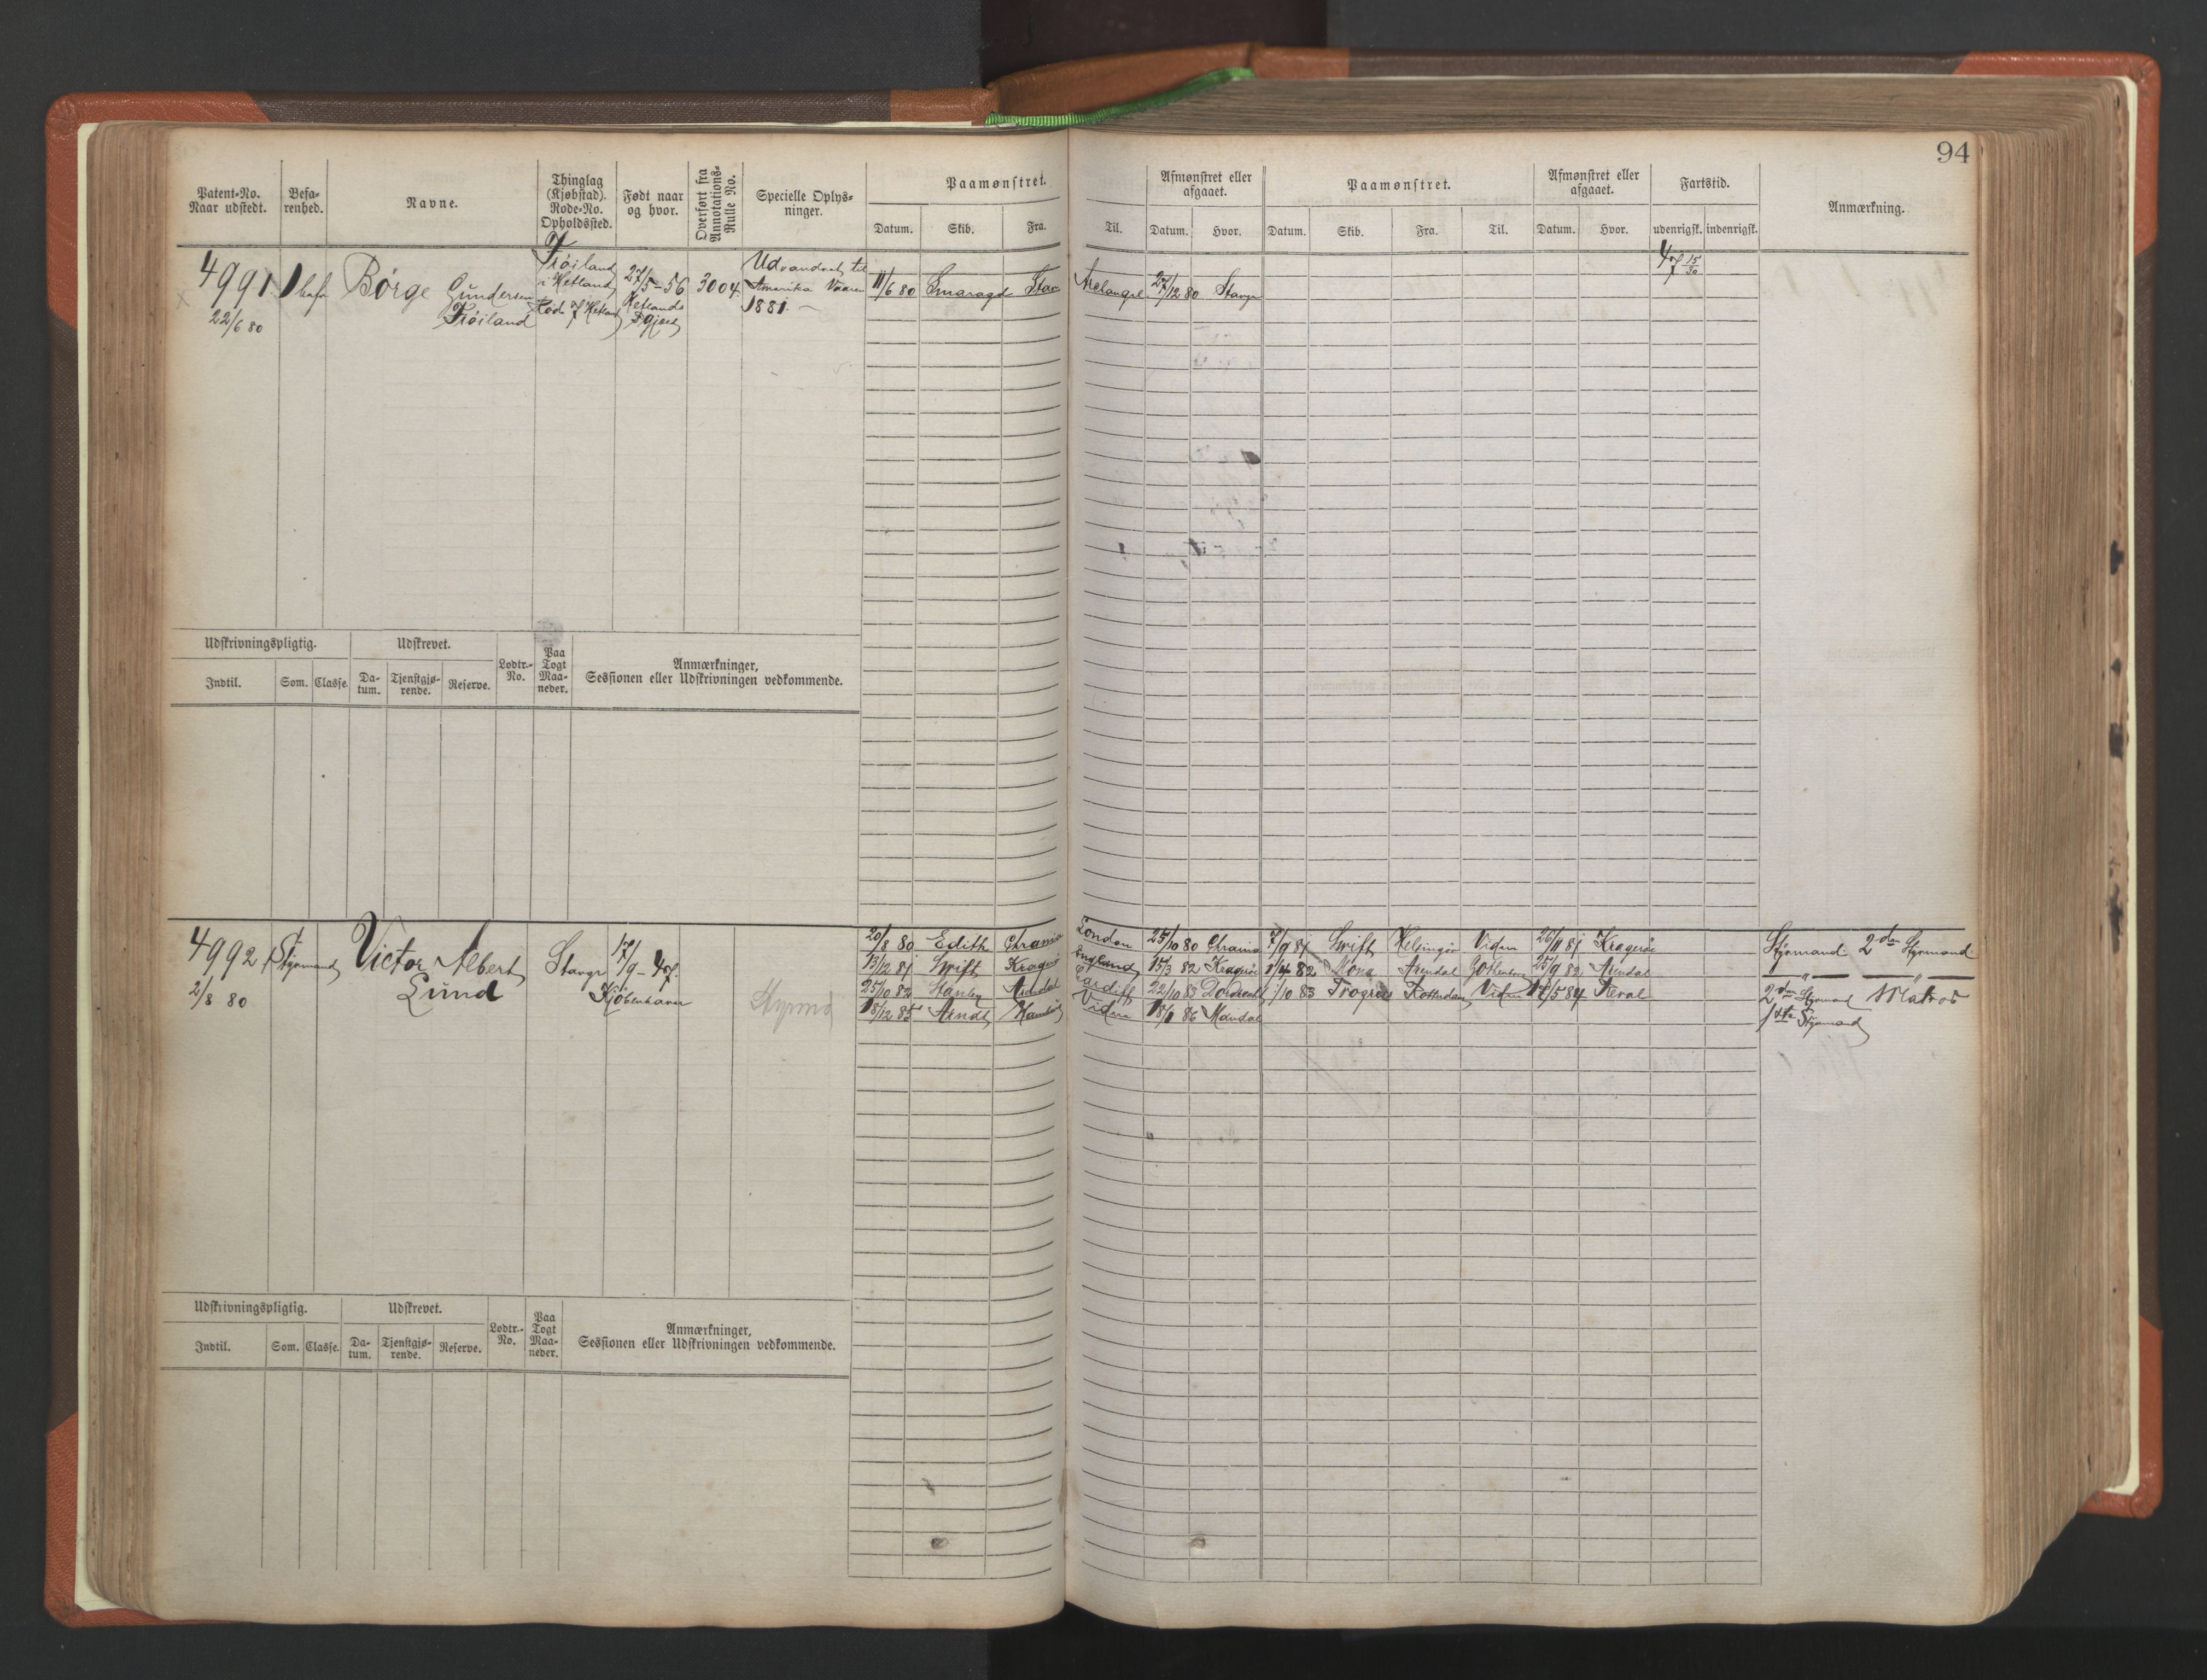 94
Patent-No. Naar udstedt. Befa-renhed. Navne. Thinglag (Kjøbstad). Rode-No. Opholdssted. Født naar og hvor. Overført fra Annotations-Rulle No. Specielle Oplys-ninger. Paamønstret. Afmønstret eller afgaaet. Paamønstret. Afmønstret eller afgaaet. Fartstid. Anmærkning.
Datum. Skib. Fra. Til. Datum. Hvor. Datum. Skib. Fra. Til. Datum. Hvor. udenrigsk. indenrigsk.
4991. 1 Børge Gundersen Trøiland
22/6 80
Trøiland i Hetland
27/5-56 Hetlands
3004.
Udvandret til Amerika Vaaren 1881.
11/6 80 Smaragd Stav Archangel 27/12 80 Stavgr
15/30
Udskrivningspligtig. Udskrevet. Lodtr.-No. Paa Togt Maa-neder. Anmærkninger, Sessionen eller Udskrivningen vedkommende.
Indtil. Som. Classe. Da-tum. Tjenstgjø-rende. Reserve.
4992 Styrmand Victor Albert Lund
2/8 80
Stavgr
17/9-
Kjøbenhavn
Styrmd
20/8 80 Edith Chrania London 25/10 80 Chrania 7/9 81 Swift Helsingør Viden 26/11 81 Kragerøe Styrmand 2den Styrmand
13/12 81 Swift Kragerø England 15/3 82 Kragerøe 8/4 82 Nora Arendal Gothenborg 25/9 82 Arendal
25/10 82 Stanley Arendal Cardiff 22/10 83 Dordrecht /10 83 Rotterdam Viden /5 84 Reval 2den Styrmand Matros
18/12 85 Arndt Viden 18/1 86 Mandal 1ste Styrmand
Udskrivningspligtig. Udskrevet. Lodtr.-No. Paa Togt Maa-neder. Anmærkninger, Sessionen eller Udskrivningen vedkommende.
Indtil. Som. Classe. Da-tum. Tjenstgjø-rende. Reserve.